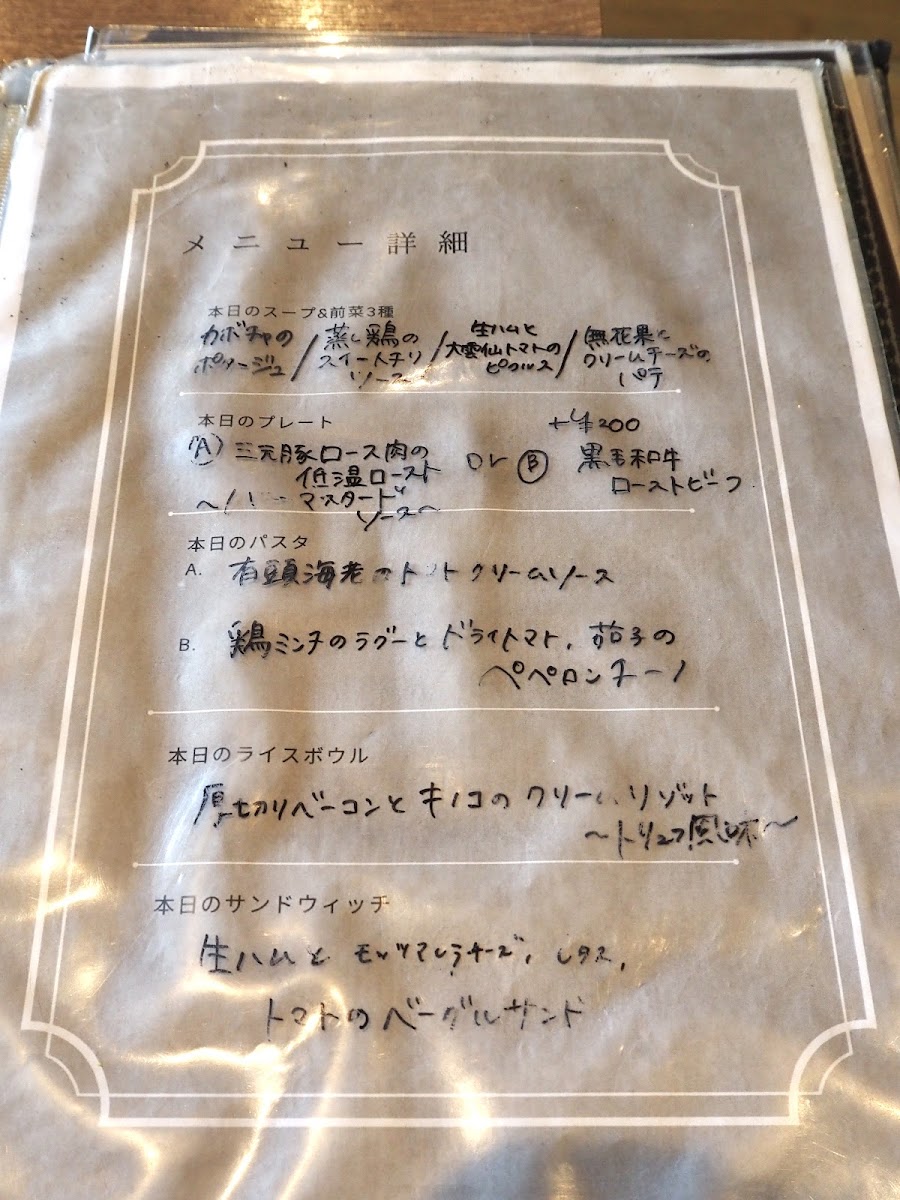 メニュー詳細
本日のスープ&前菜3種
カボチャの
ポタージュ
/
蒸し鶏の
スイートチリ
ソース
/
生ハムと
大雲仙トマトの
ピクルス
/
無花果と
クリームチーズの
パテ
本日のプレート
+¥200
(A) 三元豚ロース肉の
低温ロースト
マスタード
ソース〜
or
Ⓑ 黒毛和牛
ローストビーフ
本日のパスタ
A. 有頭海老のトマトクリームソース
B. 鶏ミンチのラグーとドライトマト、茄子の
ペペロンチーノ
本日のライスボウル
厚切りベーコンとキノコのクリームリゾット
〜トリュフ風味〜
本日のサンドウィッチ
生ハムとモッツァレラチーズ、レタス、
トマトのベーグルサンド